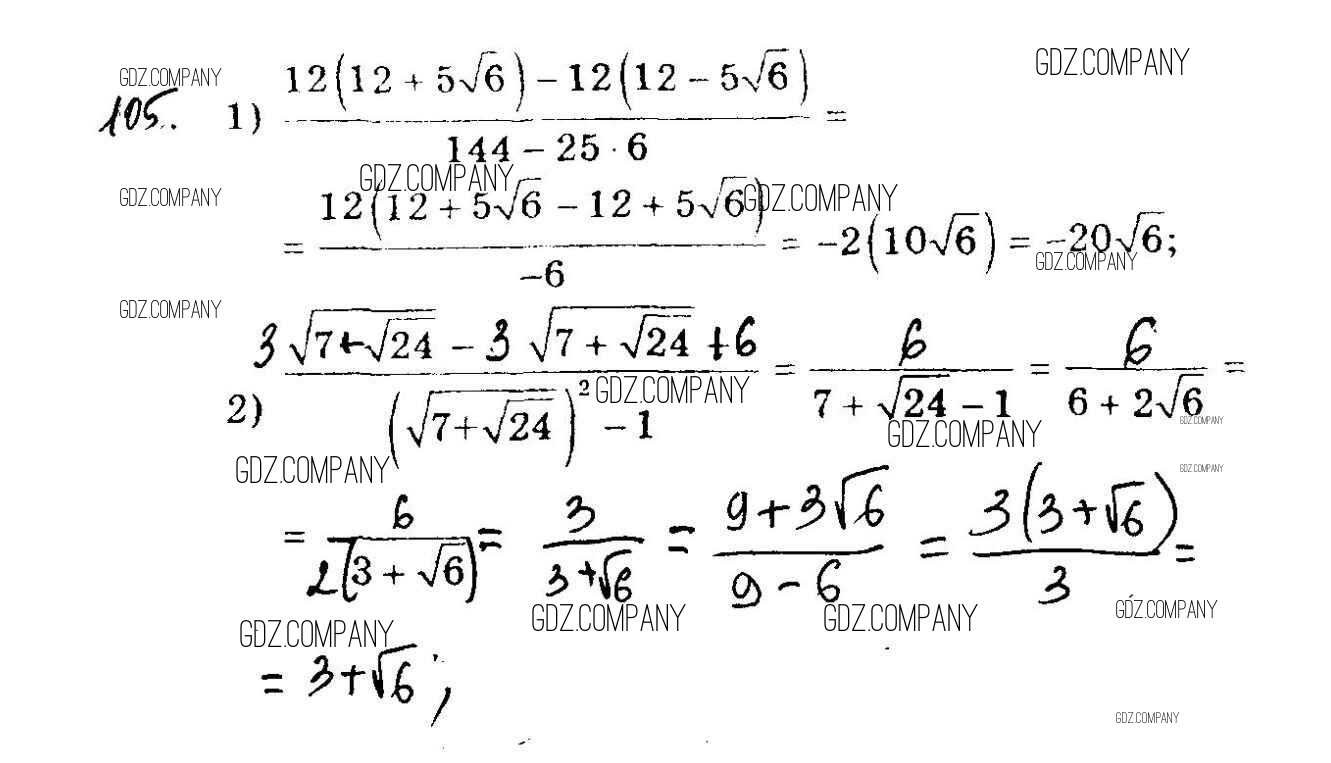 GDZ.COMPANY GDZ.COMPANY
105. 1) \frac{12(12 + 5\sqrt{6}) - 12(12 - 5\sqrt{6})}{144 - 25 \cdot 6} =
GDZ.COMPANY GDZ.COMPANY GDZ.COMPANY
= \frac{12(12 + 5\sqrt{6} - 12 + 5\sqrt{6})}{-6} = -2(10\sqrt{6}) = -20\sqrt{6};
GDZ.COMPANY
GDZ.COMPANY
2) \frac{3\sqrt{7+\sqrt{24}} - 3\sqrt{7+\sqrt{24}} + 6}{(\sqrt{7+\sqrt{24}})^2 - 1} = \frac{6}{7+\sqrt{24} - 1} = \frac{6}{6 + 2\sqrt{6}} =
GDZ.COMPANY GDZ.COMPANY GDZ.COMPANY
GDZ.COMPANY GDZ.COMPANY
= \frac{6}{2(3 + \sqrt{6})} = \frac{3}{3+\sqrt{6}} = \frac{9+3\sqrt{6}}{9-6} = \frac{3(3+\sqrt{6})}{3} =
GDZ.COMPANY GDZ.COMPANY GDZ.COMPANY GDZ.COMPANY
= 3+\sqrt{6};
GDZ.COMPANY